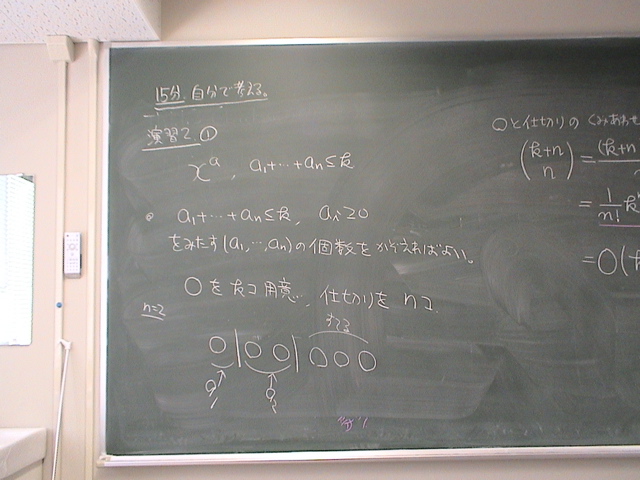 15分 自分で考える。
演習2. ①
x^a , a₁+…+aₙ≤k
a₁+…+aₙ≤k, aᵢ≥0
をみたす(a₁,…,aₙ)の個数をかぞえればよい。
○をkコ用意、仕切りをnコ
n=2
すてる
○|○○|○○○
a₁ a₂
○と仕切りのくみあわせ
(k+n n) = (k+n
= 1/n! k
= O(k